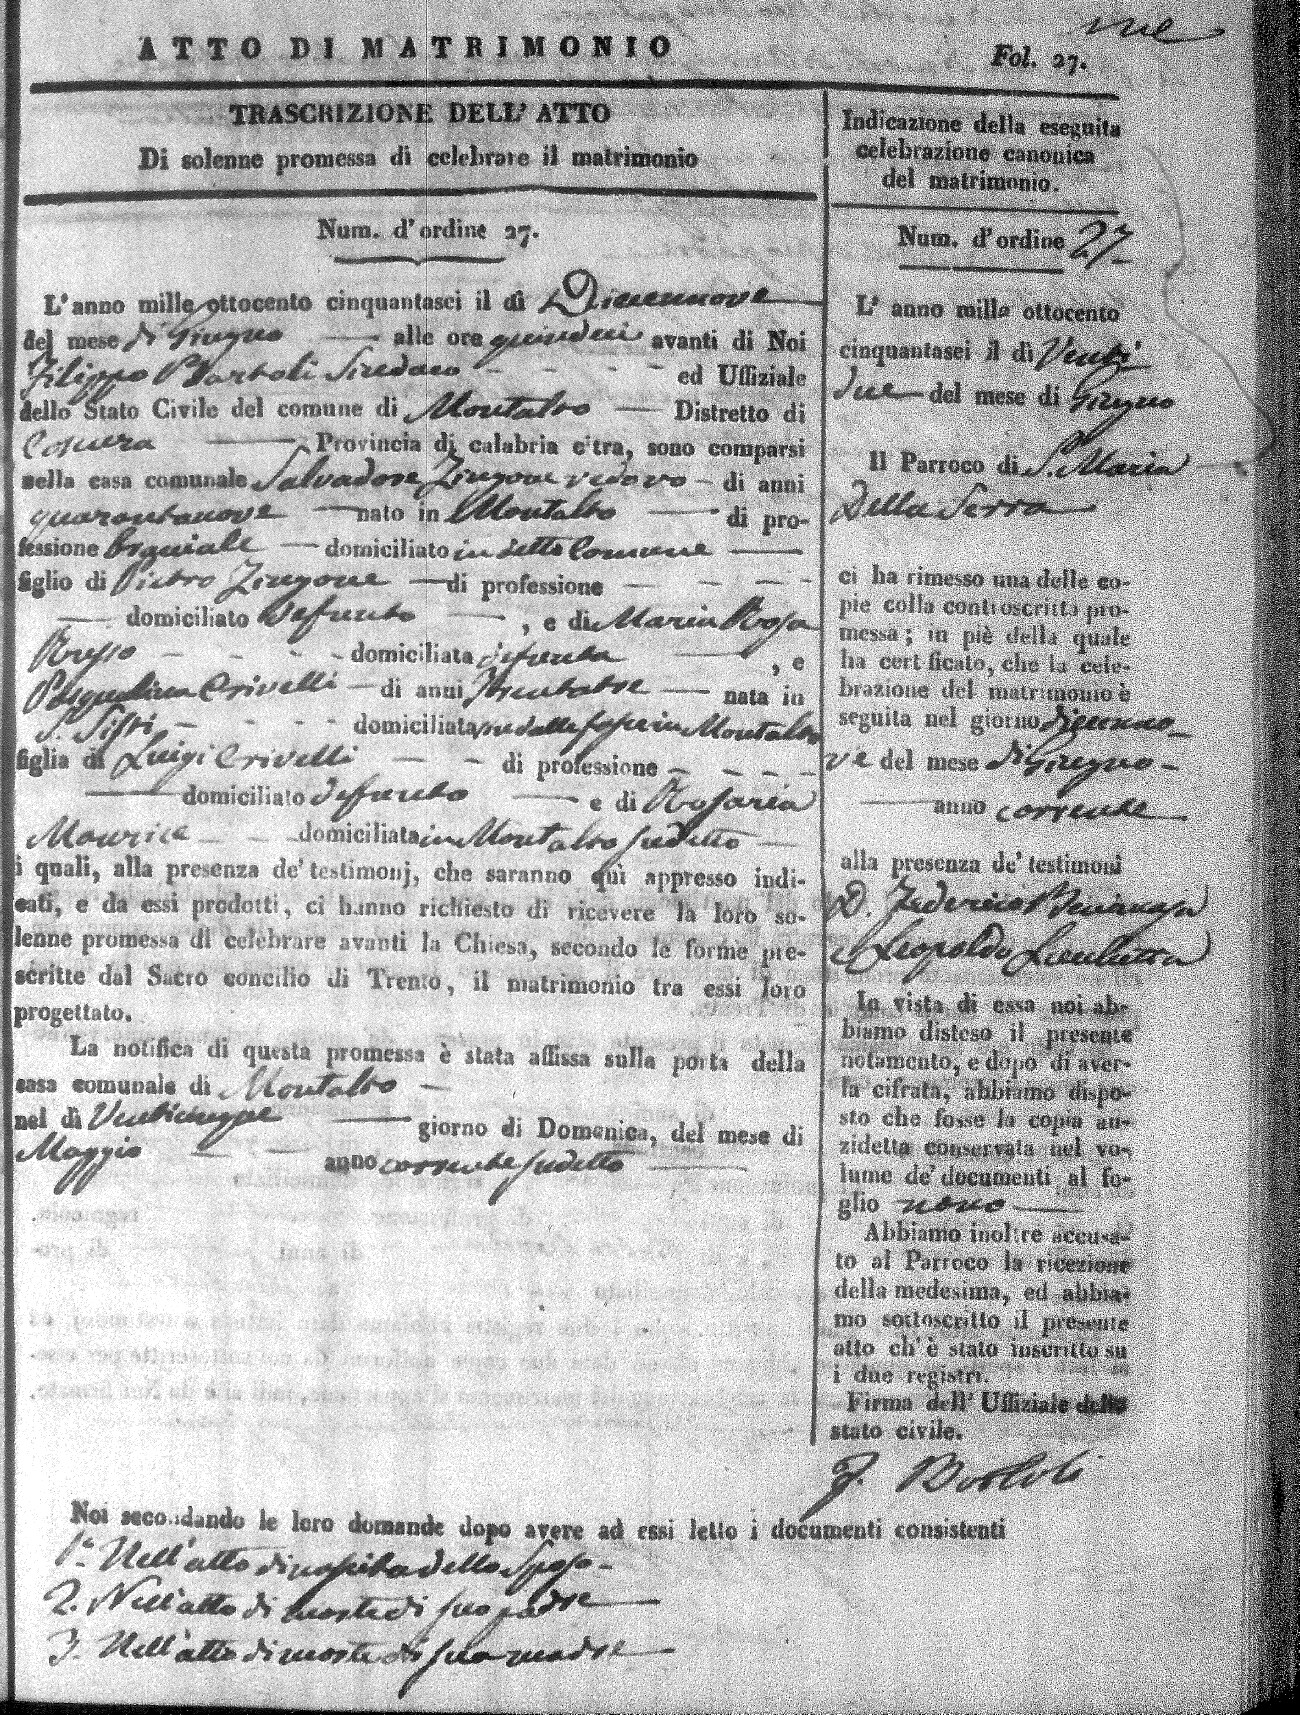 ATTO DI MATRIMONIO
Fol. 27.
TRASCRIZIONE DELL' ATTO
Di solenne promessa di celebrare il matrimonio
Num. d'ordine 27.
L'anno mille ottocento cinquantasei il dì Diecennove
del mese di Giugno alle ore quindeci avanti di Noi
Filippo Bartoli Sindaco ed Uffiziale
dello Stato Civile del comune di Montalto Distretto di
Cosenza Provincia di calabria citra, sono comparsi
nella casa comunale Salvadore Zingone vedovo di anni
quarantanove nato in Montalto di pro-
fessione domiciliato in detto Comune
figlio di Pietro Zingone di professione
domiciliato defunto , e di Maria Rosa
Russo domiciliata defunta , e
Pasqualina Crivelli di anni trentatre nata in
S. Sisti domiciliata in Montalto
figlia di Luigi Crivelli di professione
domiciliato defunto e di Rosaria
domiciliata in Montalto sudetto
i quali, alla presenza de' testimonj, che saranno quì appresso indi-
cati, e da essi prodotti, ci hanno richiesto di ricevere la loro so-
lenne promessa di celebrare avanti la Chiesa, secondo le forme pre-
scritte dal Sacro concilio di Trento, il matrimonio tra essi loro
progettato.
La notifica di questa promessa è stata affissa sulla porta della
casa comunale di Montalto
nel dì Venticinque giorno di Domenica, del mese di
Maggio anno corrente sudetto
Indicazione della eseguita
celebrazione canonica
del matrimonio.
Num. d'ordine 27
L' anno mille ottocento
cinquantasei il dì Venti
due del mese di Giugno
Il Parroco di S. Maria
Della Serra
ci ha rimesso una delle co-
pie colla controscritta pro-
messa; in piè della quale
ha certificato, che la cele-
brazione del matrimonio è
seguita nel giorno diecenno
ve del mese di Giugno
anno corrente
alla presenza de' testimoni
D. Federico
e Leopoldo
In vista di essa noi ab-
biamo disteso il presente
notamento, e dopo di aver-
la cifrata, abbiamo dispo-
sto che fosse la copia an-
zidetta conservata nel vo-
lume de' documenti al fo-
glio nono
Abbiamo inoltre accusa-
to al Parroco la ricezione
della medesima, ed abbia-
mo sottoscritto il presente
atto ch'è stato inscritto su
i due registri.
Firma dell' Uffiziale dello
stato civile.
F. Bartoli
Noi secondando le loro domande dopo avere ad essi letto i documenti consistenti
1.° Nell'atto di nascita dello Sposo
2. Nell'atto di morte di suo padre
3. Nell'atto di morte di sua madre